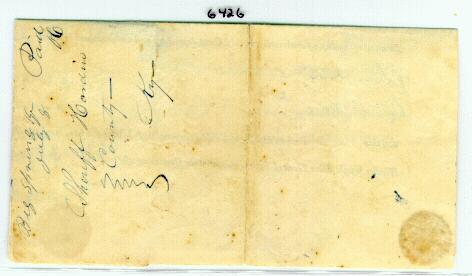 6426
Big Spring Ky
July 8
Paid
Sheriff Hardin
County
Ky